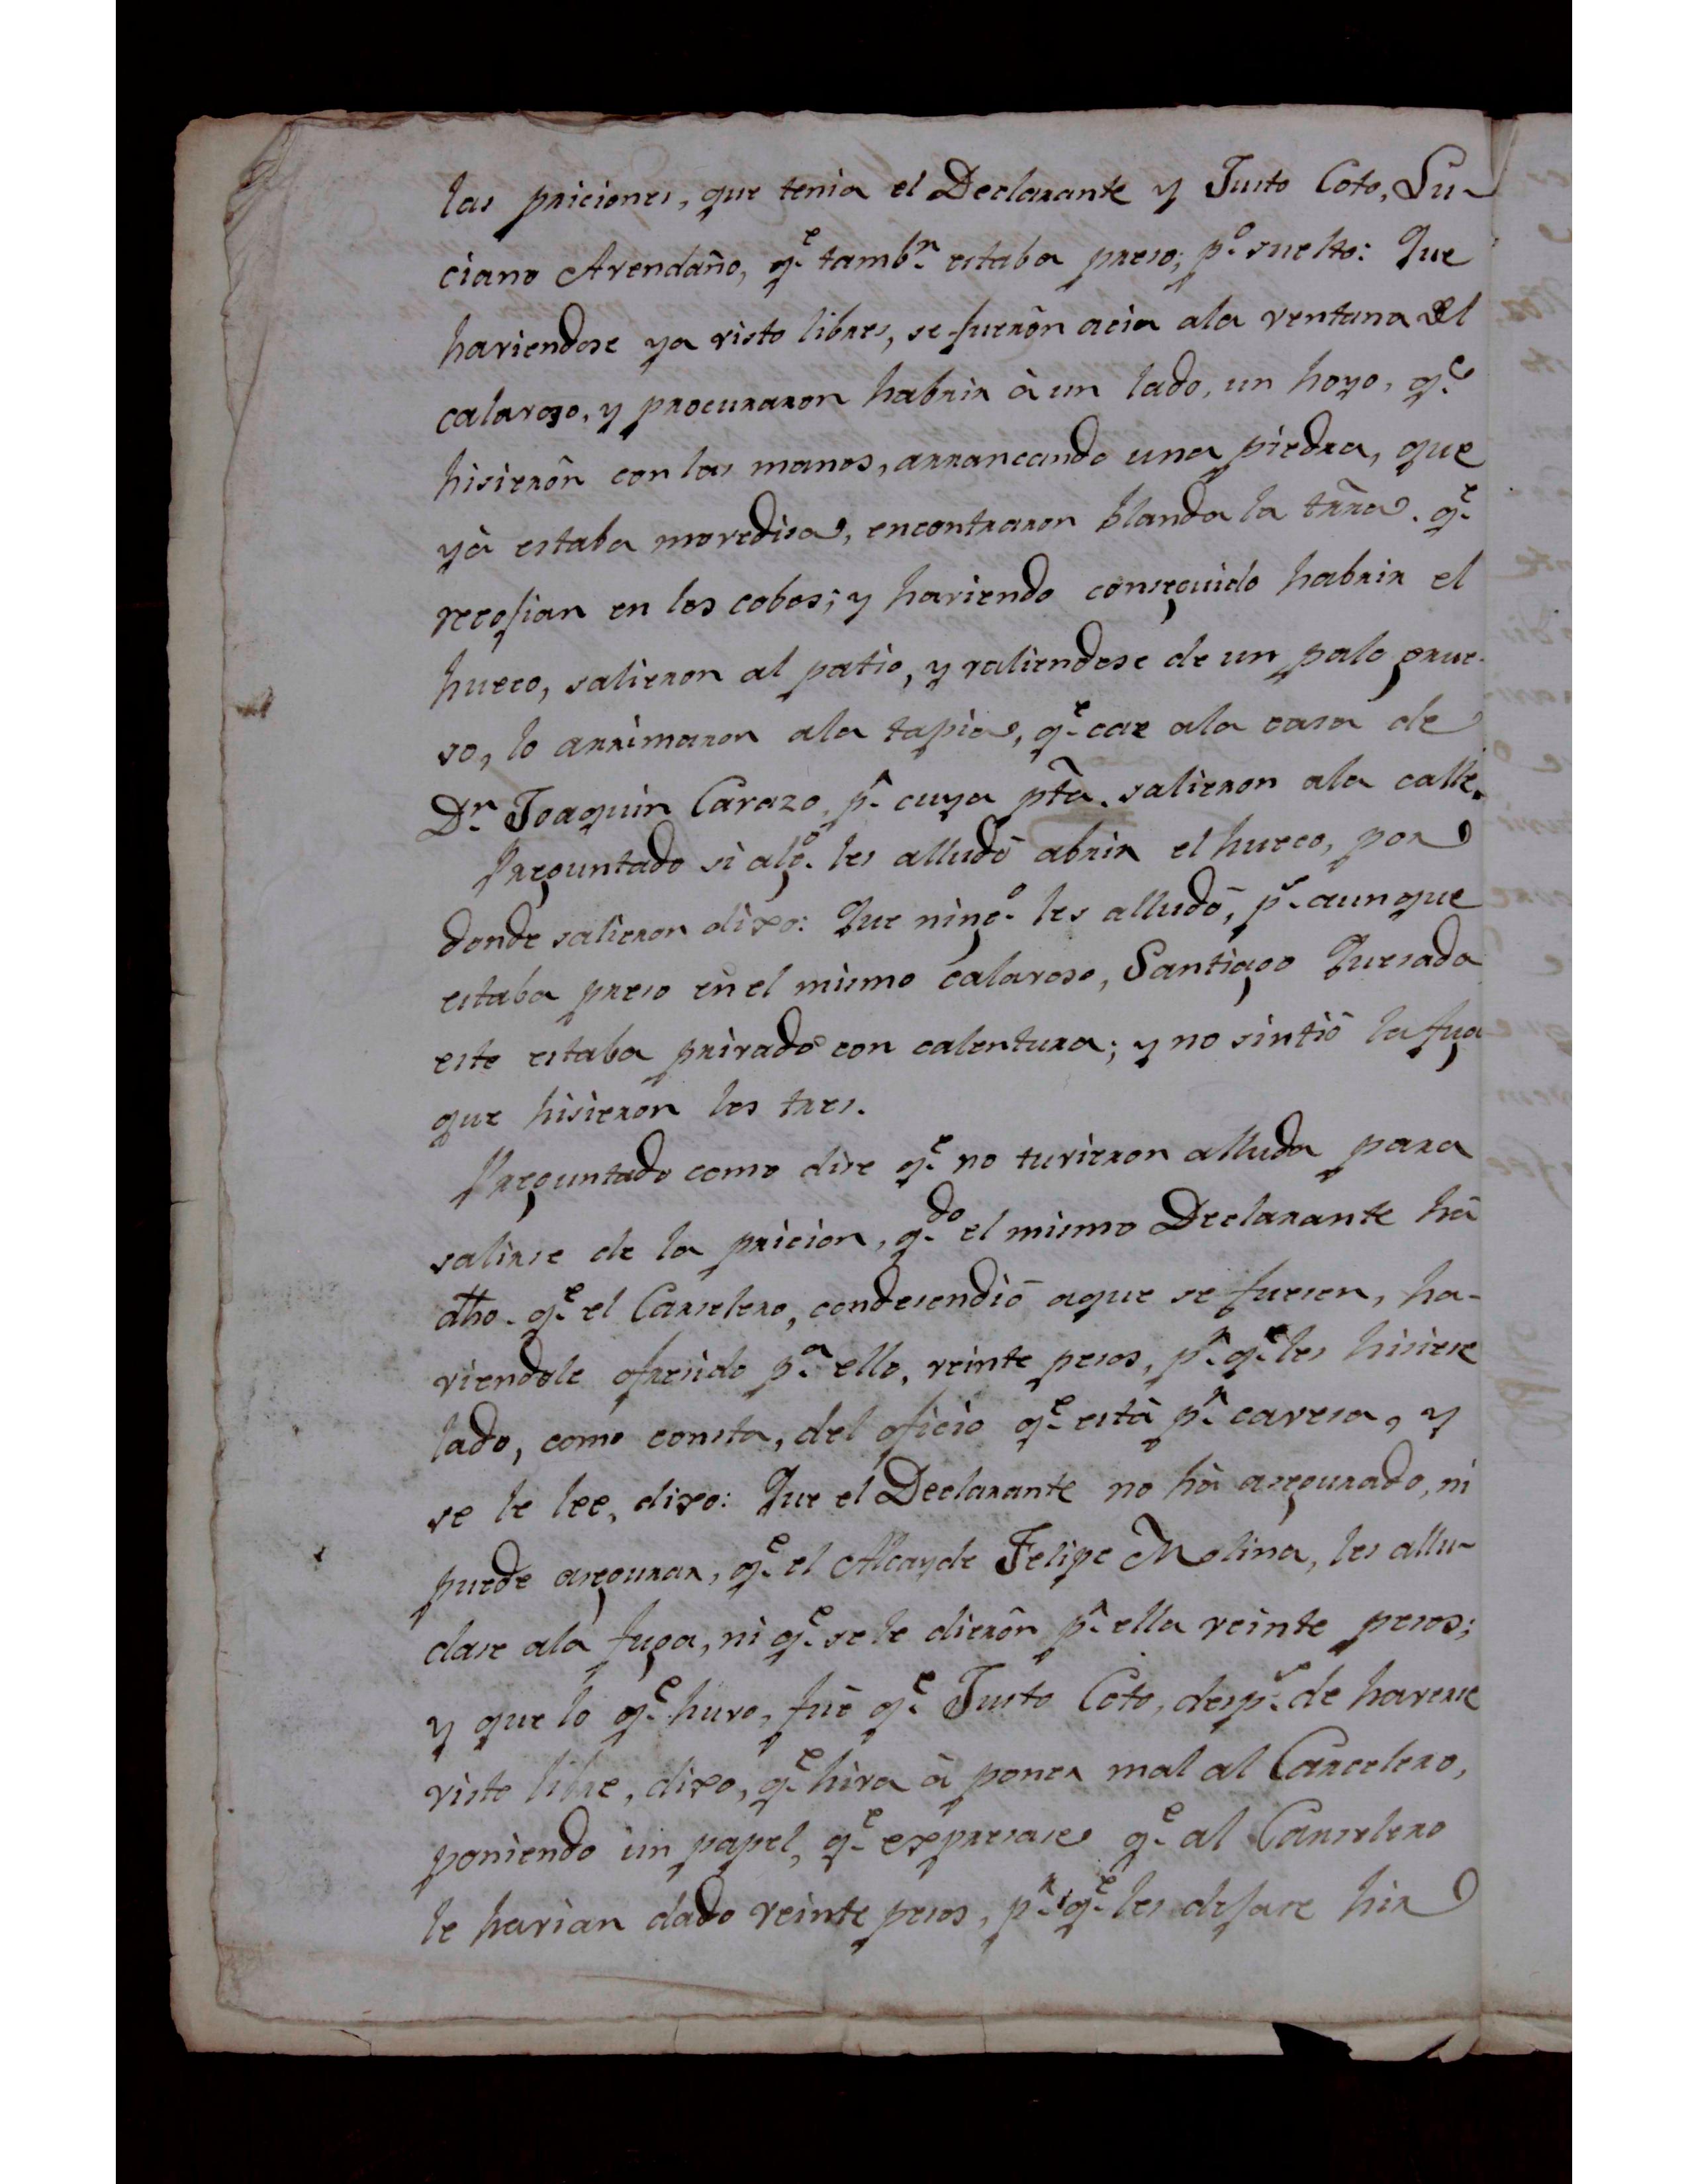 las priciones, que tenia el Declarante y Justo Coto, Lu-
ciano Avendaño, q.^e tamb.^n estaba preso; p.^o suelto: Que
haviendose ya visto libres, se fuerõn acia ala ventana del
calavoso, y procuraron habrir à un lado, un hoyo, q.^e
hisierõn con las manos, arrancando una piedra, que
yà estaba movedisa, encontraron blanda la trr̃a. q.^e
recosian en los cobos; y haviendo conseguido habrir el
hueco, salieron al patio, y valiendose de un palo grue-
so, lo arrimaron ala tapia, q.^e cae ala casa de
D.^n Joaquin Carazo, p.^r cuya pt̃a. salieron ala calle.
Preguntado si alg.^o les alludó abrir el hueco, por
donde salieron dixo: Que ning.^o les alludó, p.^s aunque
estaba preso en el mismo calavoso, Santiago Quesada
este estaba privado con calentura; y no sintió la fuga
que hisieron los tres.
Preguntado como dise q.^e no tuvieron alluda para
salirse de la pricion, q.^do el mismo Declarante há
dho. q.^e el Carselero, condesendió aque se fuesen, ha-
viendole ofresido p.^a ello, veinte pesos, p.^r q.^e les hisiese
lado, como consta, del oficio q.^e està p.^r cavesa, y
se le lee, dixo: Que el Declarante no hà asegurado, ni
puede asegurar, q.^e el Alcayde Felipe Molina, les allu-
dase ala fuga, ni q.^e se le dierõn p.^r ella veinte pesos;
y que lo q.^e huvo, fué q.^e Justo Coto, desp.^s de haverse
visto libre, dixo, q.^e hiva à poner mal al Carcelero,
poniendo un papel, q.^e expresase q.^e al Carselero
le havian dado veinte pesos, p.^r q.^e les desase hir